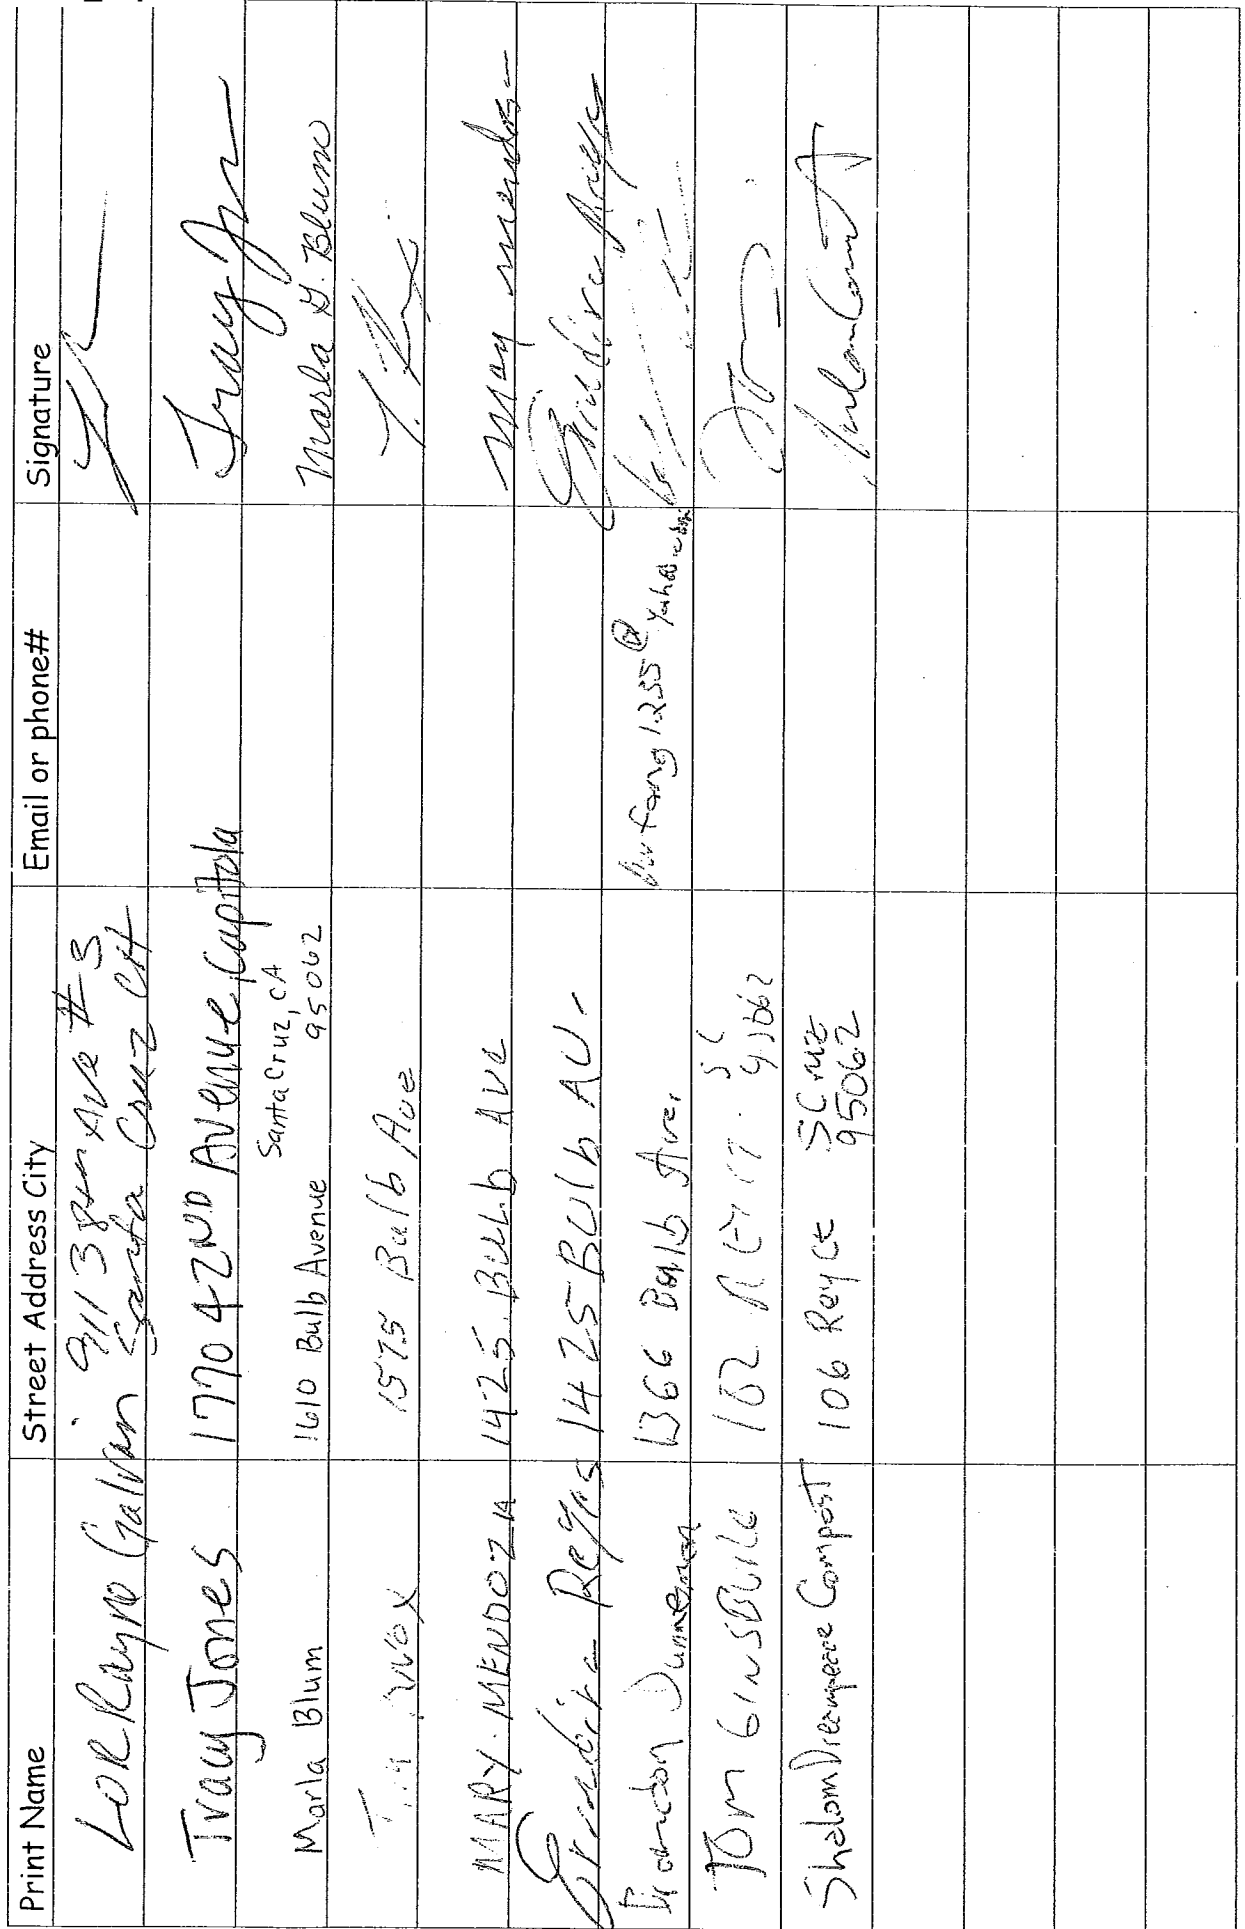 Print Name Street Address City Email or phone# Signature
LORRayne Galvan 911 38th Ave #3
Santa Cruz CA
Tracy Jones 1770 42ND Avenue Capitola Tracy J
Marla Blum 1610 Bulb Avenue Santa Cruz, CA
95062 Marla G. Blum
1575 Bulb Ave T.
MARY. MENDOZA 1425. Bulb AVE Mary Mendoza
Erendira Reyes 1425 Bulb AV. Erendira Reyes
Brandon Dunneman 1366 Bulb Ave.
TOM GINSBURG 102 SC
95062
Shalom Dreampeace Compost 106 Rey Ct SCruz
95062 Shalom Compost